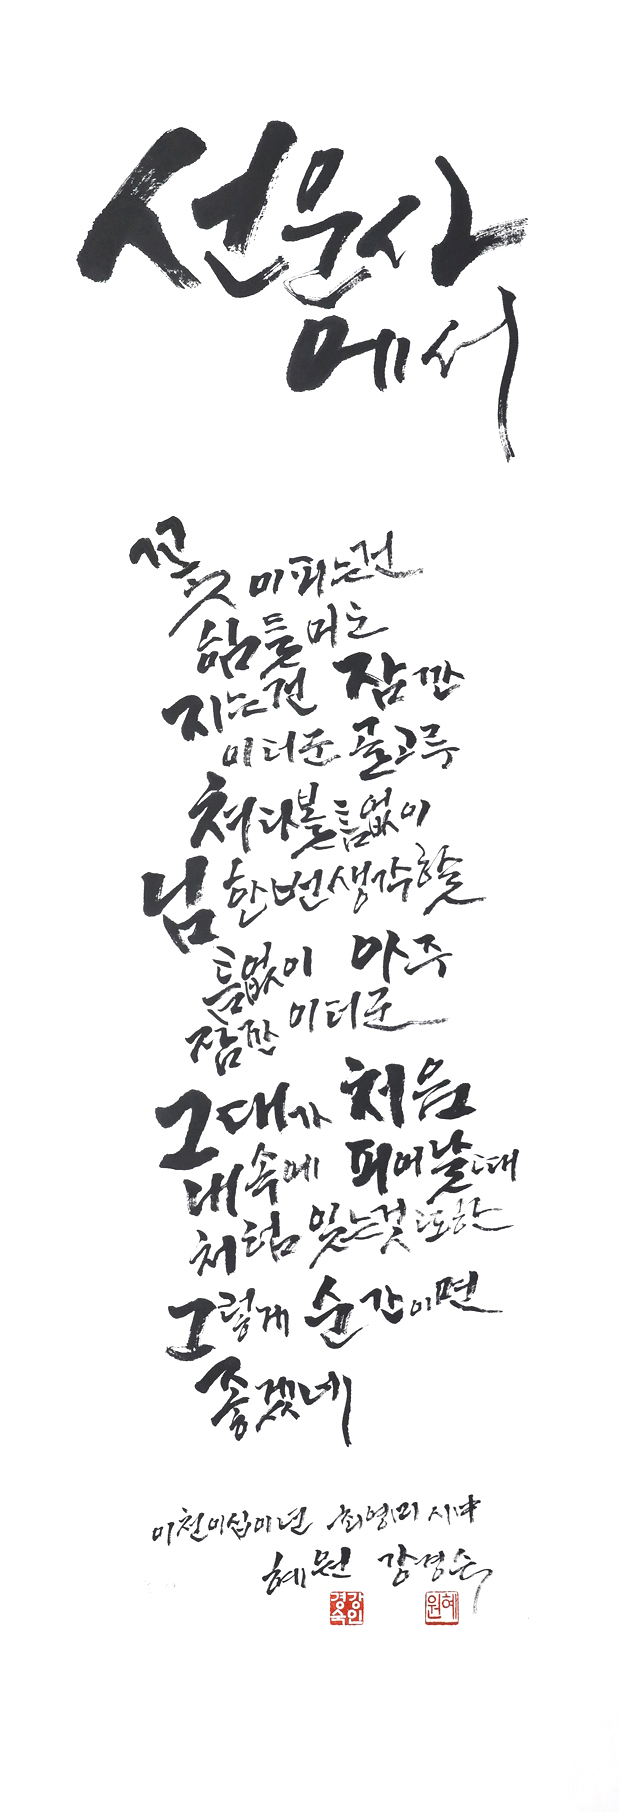 선운사
에서
꽃이 피는건
힘들어도
지는건 잠깐
이더군 골고루
쳐다볼 틈없이
님 한번 생각할
틈없이 아주
잠깐 이더군
그대가 처음
내속에 피어날때
처럼 잊는것 또한
그렇게 순간이면
좋겠네
이천이십이년 최영미 시中
혜원 강경숙
강인경숙 혜원